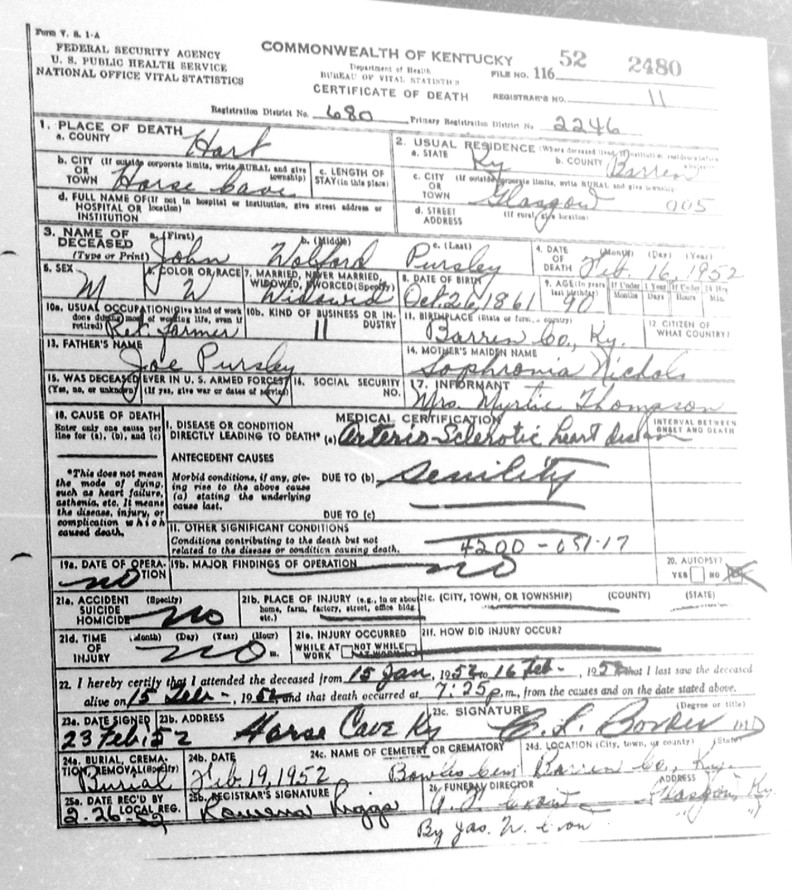 Form V. S. 1-A
FEDERAL SECURITY AGENCY
U. S. PUBLIC HEALTH SERVICE
NATIONAL OFFICE VITAL STATISTICS
COMMONWEALTH OF KENTUCKY
Department of Health
BUREAU OF VITAL STATISTICS
CERTIFICATE OF DEATH
52 2480
FILE NO. 116
REGISTRAR'S NO. 11
Registration District No. 680 Primary Registration District No. 2246
1. PLACE OF DEATH
a. COUNTY Hart
2. USUAL RESIDENCE (Where deceased lived.
a. STATE Ky b. COUNTY Barren
b. CITY (If outside corporate limits, write RURAL and give
OR township)
TOWN Horse Cave
c. LENGTH OF
STAY (in this place)
c. CITY (If outside corporate limits, write RURAL and give township)
OR
TOWN Glasgow 005
d. FULL NAME OF (If not in hospital or institution, give street address or
HOSPITAL OR location)
INSTITUTION
d. STREET (If rural, give location)
ADDRESS
3. NAME OF
DECEASED
(Type or Print)
a. (First) b. (Middle) c. (Last)
John Wolford Pursley
4. DATE (Month) (Day) (Year)
OF
DEATH Feb. 16, 1952
5. SEX
M
6. COLOR OR RACE
W
7. MARRIED, NEVER MARRIED,
WIDOWED, DIVORCED (Specify)
Widowed
8. DATE OF BIRTH
Oct. 26, 1861
9. AGE (In years
last birthday)
90
If Under 1 Year
Months Days
If Under 24 Hrs
Hours Min.
10a. USUAL OCCUPATION (Give kind of work
done during most of working life, even if
retired) Ret. farmer
10b. KIND OF BUSINESS OR INDUSTRY
11
11. BIRTHPLACE (State or foreign country)
Barren Co., Ky.
12. CITIZEN OF
WHAT COUNTRY?
13. FATHER'S NAME
Joe Pursley
14. MOTHER'S MAIDEN NAME
Sophronia Nichols
15. WAS DECEASED EVER IN U. S. ARMED FORCES?
(Yes, no, or unknown) (If yes, give war or dates of service)
16. SOCIAL SECURITY
NO.
17. INFORMANT
Mrs. Myrtie Thompson
18. CAUSE OF DEATH
Enter only one cause per
line for (a), (b), and (c)
MEDICAL CERTIFICATION
INTERVAL BETWEEN
ONSET AND DEATH
I. DISEASE OR CONDITION
DIRECTLY LEADING TO DEATH* (a) Arterio-Sclerotic heart disease
*This does not mean
the mode of dying,
such as heart failure,
asthenia, etc. It means
the disease, injury, or
complication which
caused death.
ANTECEDENT CAUSES
Morbid conditions, if any, giving
rise to the above cause
(a) stating the underlying
cause last.
DUE TO (b) Senility
DUE TO (c)
II. OTHER SIGNIFICANT CONDITIONS
Conditions contributing to the death but not
related to the disease or condition causing death.
4200-051-17
19a. DATE OF OPERATION
no
19b. MAJOR FINDINGS OF OPERATION
no
20. AUTOPSY?
YES NO
21a. ACCIDENT (Specify)
SUICIDE
HOMICIDE no
21b. PLACE OF INJURY (e.g., in or about
home, farm, factory, street, office bldg.
etc.)
21c. (CITY, TOWN, OR TOWNSHIP) (COUNTY) (STATE)
21d. TIME (Month) (Day) (Year) (Hour)
OF
INJURY no m.
21e. INJURY OCCURRED
WHILE AT NOT WHILE
WORK AT WORK
21f. HOW DID INJURY OCCUR?
22. I hereby certify that I attended the deceased from 15 Jan, 1952 to 16 Feb-, 1952 that I last saw the deceased
alive on 15 Feb-, 1952, and that death occurred at 7:25 p.m., from the causes and on the date stated above.
23a. DATE SIGNED
23 Feb: 52
23b. ADDRESS
Horse Cave Ky
23c. SIGNATURE (Degree or title)
MD
24a. BURIAL, CREMATION
REMOVAL (Specify)
Burial
24b. DATE
Feb. 19, 1952
24c. NAME OF CEMETERY OR CREMATORY
Bowles Cem
24d. LOCATION (City, town, or county) (State)
Barren Co., Ky.
25a. DATE REC'D BY
LOCAL REG.
2-26-52
25b. REGISTRAR'S SIGNATURE
Riggs
26. FUNERAL DIRECTOR ADDRESS
Glasgow, Ky.
By Jas. W.